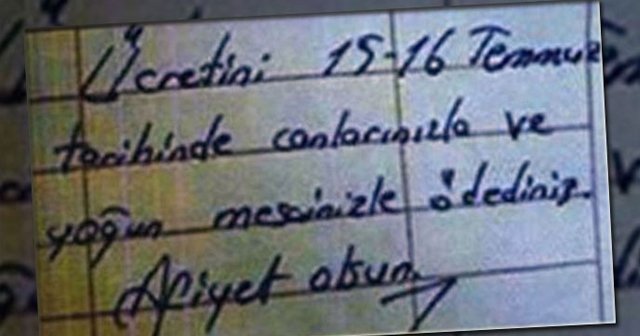 Ücretini 15-16 Temmuz
tarihinde canlarınızla ve
yoğun mesainizle ödediniz.
Afiyet olsun